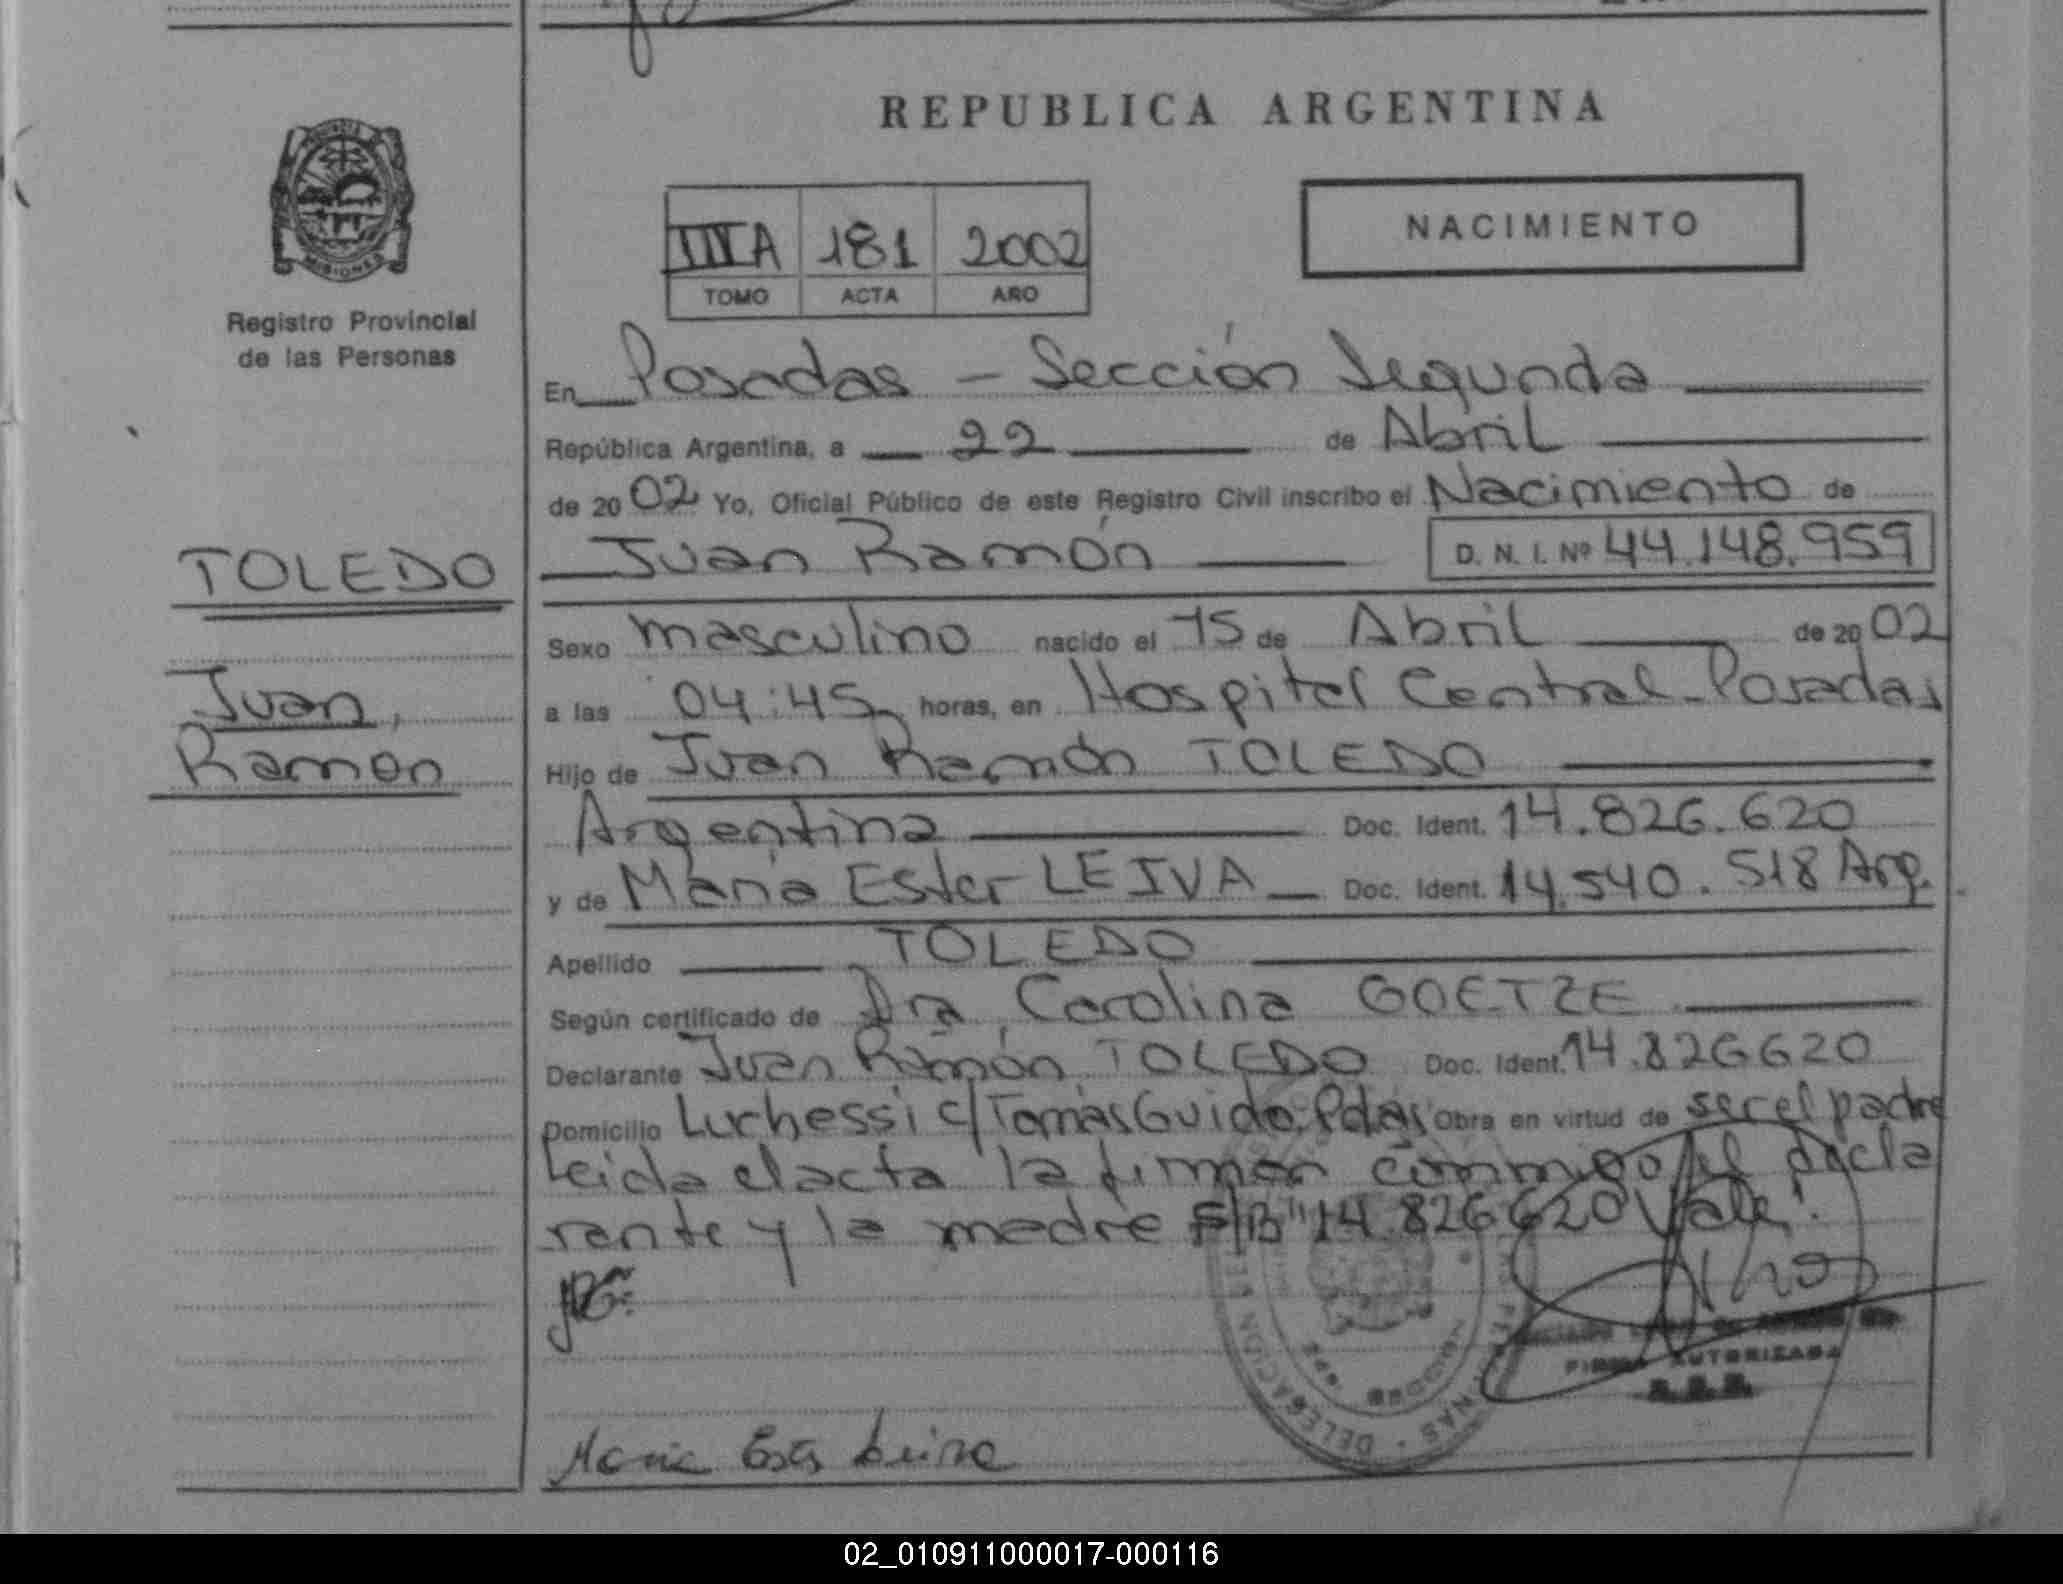 REPUBLICA ARGENTINA
PROVINCIA
MISIONES
Registro Provincial
de las Personas
IIIA 181 2002
TOMO ACTA AÑO
NACIMIENTO
En Posadas - Sección Segunda
República Argentina, a 22 de Abril
de 2002 Yo, Oficial Público de este Registro Civil inscribo el Nacimiento de
TOLEDO
Juan Ramón D. N. I. Nº 44.148.959
Sexo masculino nacido el 15 de Abril de 2002
Juan,
a las 04:45 horas, en Hospital Central - Posadas
Ramon
Hijo de Juan Ramón TOLEDO
Argentina Doc. Ident. 14.826.620
y de María Ester LEIVA Doc. Ident. 14.540.518 Arg.
Apellido TOLEDO
Según certificado de Dra. Carolina GOETZE
Declarante Juan Ramón TOLEDO Doc. Ident. 14.826620
Domicilio Luchessi c/ Tomás Guido. Pdas Obra en virtud de ser el padre
Leida el acta la firman conmigo el decla
rante y la madre S/B "14.826620 Vale".
FIRMA AUTORIZADA
DELEGACION
Maria Ester Leiva
02_010911000017-000116